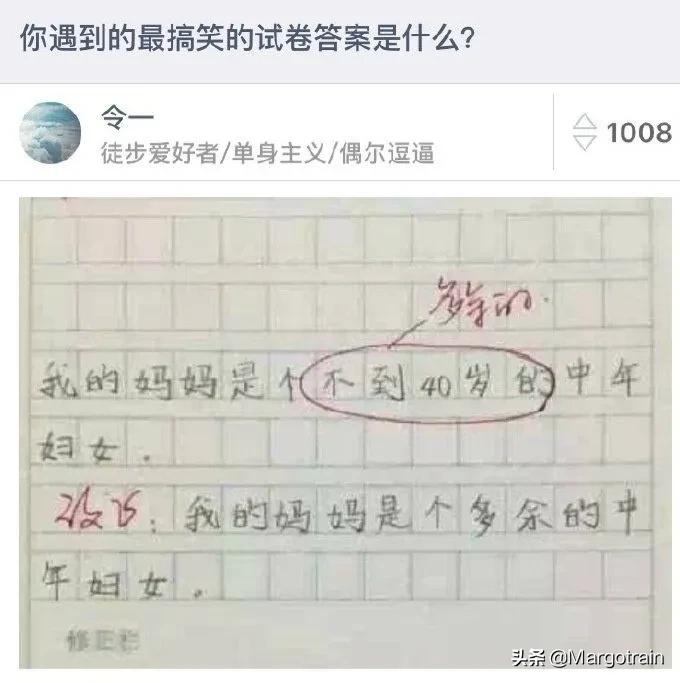 你遇到的最搞笑的试卷答案是什么?
令一
1008
徒步爱好者/单身主义/偶尔逗逼
多余的.
我的妈妈是个不到40岁的中年
妇女.
改正:我的妈妈是个多余的中
年妇女.
修正栏
头条 @Margotrain